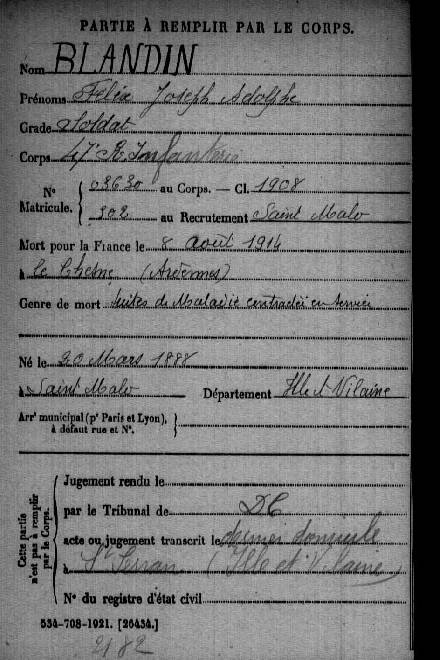 PARTIE À REMPLIR PAR LE CORPS.
Nom BLANDIN
Prénoms Félix Joseph Adolphe
Grade Soldat
Corps 47e R. Infanterie
N° Matricule. { 03630 au Corps. — Cl. 1908
302 au Recrutement Saint Malo
Mort pour la France le 8 août 1914
à le Chesne (Ardennes)
Genre de mort Suites de Maladie contractée en service
Né le 20 Mars 1888
à Saint Malo Département Ille et Vilaine
Arrt municipal (pr Paris et Lyon), à défaut rue et N°. }
Cette partie n'est pas à remplir par le Corps.
Jugement rendu le
par le Tribunal de DC
acte ou jugement transcrit le dernier domicile
à St Servan (Ille et Vilaine)
N° du registre d'état civil
534-708-1921. [26434.]
2182